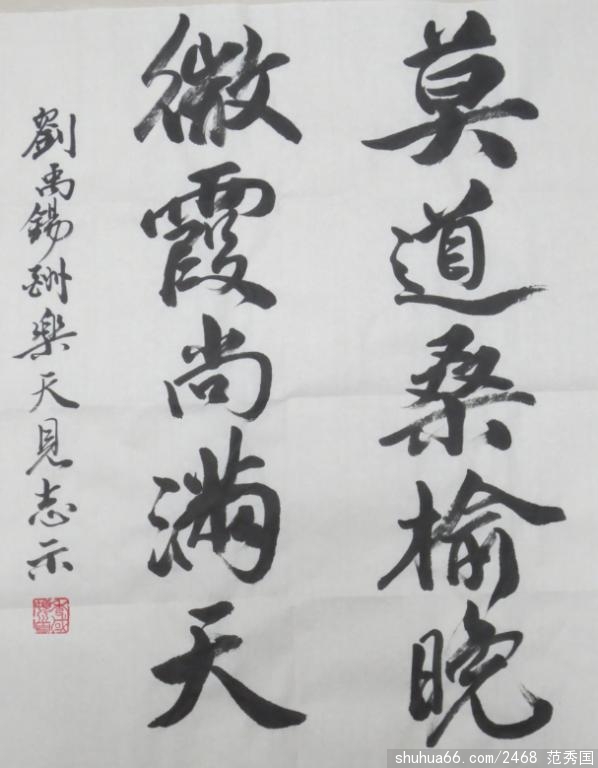 莫道桑榆晚
微霞尚滿天
劉禹錫酬樂天見志示
shuhua66.com/2468 范秀国